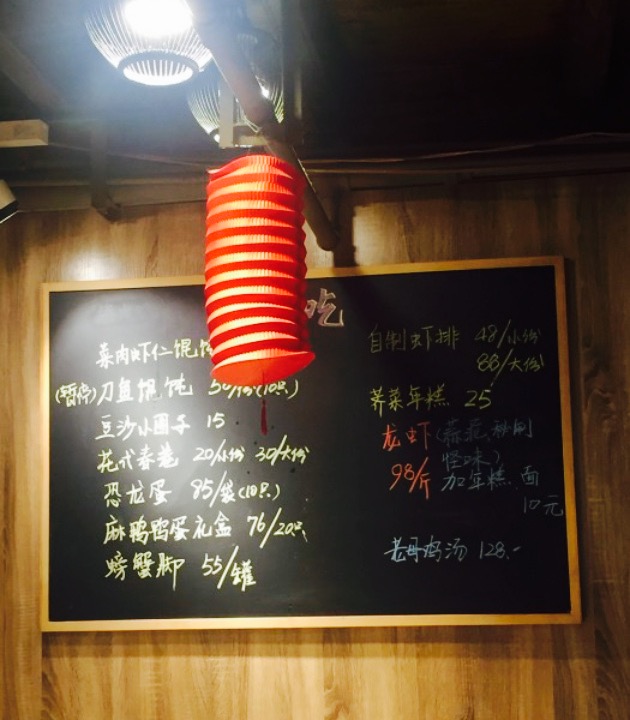 吃
菜肉虾仁馄饨
(暂停)刀鱼馄饨 50/份(10只)
豆沙小圆子 15
花式春卷 20/小份 30/大份
恐龙蛋 85/袋(10只)
麻鸭鸭蛋礼盒 76/20只
螃蟹脚 55/罐
自制虾排 48/小份
88/大份
荠菜年糕 25
龙虾(蒜蓉、秘制
怪味)
98/斤 加年糕、面
10元
老母鸡汤 128.-